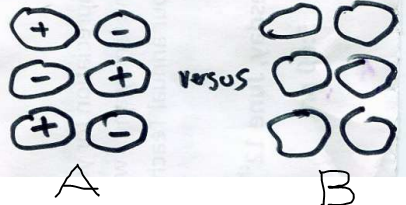 + -
- + versus
+ -
A B